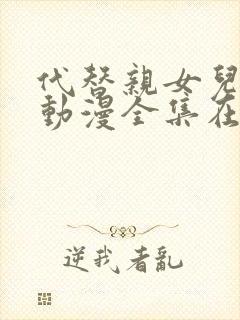 代替親女兒
動漫全集在
逆我者亂